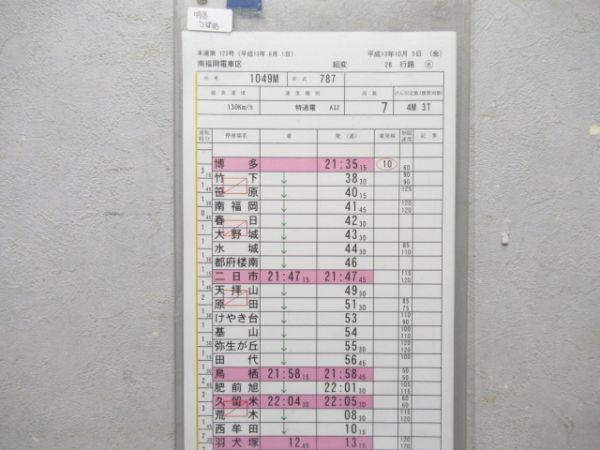 つばめ
本達第 123号 (平成13年 6月 1日)
平成13年10月 5日 (金)
南福岡電車区 組変 28 行路
列車 1049M 形式 787
最高速度 速度種別 両数 けん引定数(換算両数)
130Km/h 特通電 A32 7 4M 3T
運転時分 停車場名 着 発 (通) 着発線 制限速度 記事
博多 21:35 15 10 60
竹下 38 30
笹原 40 15
南福岡 41 45
春日 42 30
大野城 43 30
水城 44 30
都府楼南 46
二日市 21:47 15 21:47 45
天拝山 49 30
原田 51 30
けやき台 53
基山 54
弥生が丘 55 30
田代 56 45
鳥栖 21:58 15 21:58 45
肥前旭 22:01 30
久留米 22:04 30 22:05 30
荒木 08 30
西牟田 10 15
羽犬塚 12 45 13 15